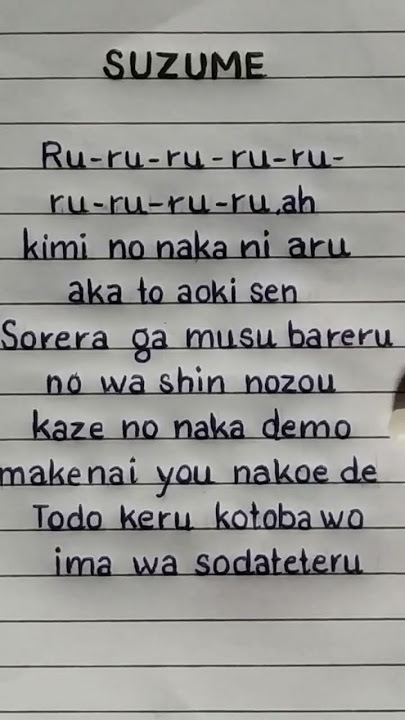 SUZUME
Ru-ru-ru-ru-ru-
ru-ru-ru-ru,ah
kimi no naka ni aru
aka to aoki sen
Sorera ga musu bareru
no wa shin nozou
kaze no naka demo
makenai you nakoe de
Todo keru kotoba wo
ima wa sodateteru